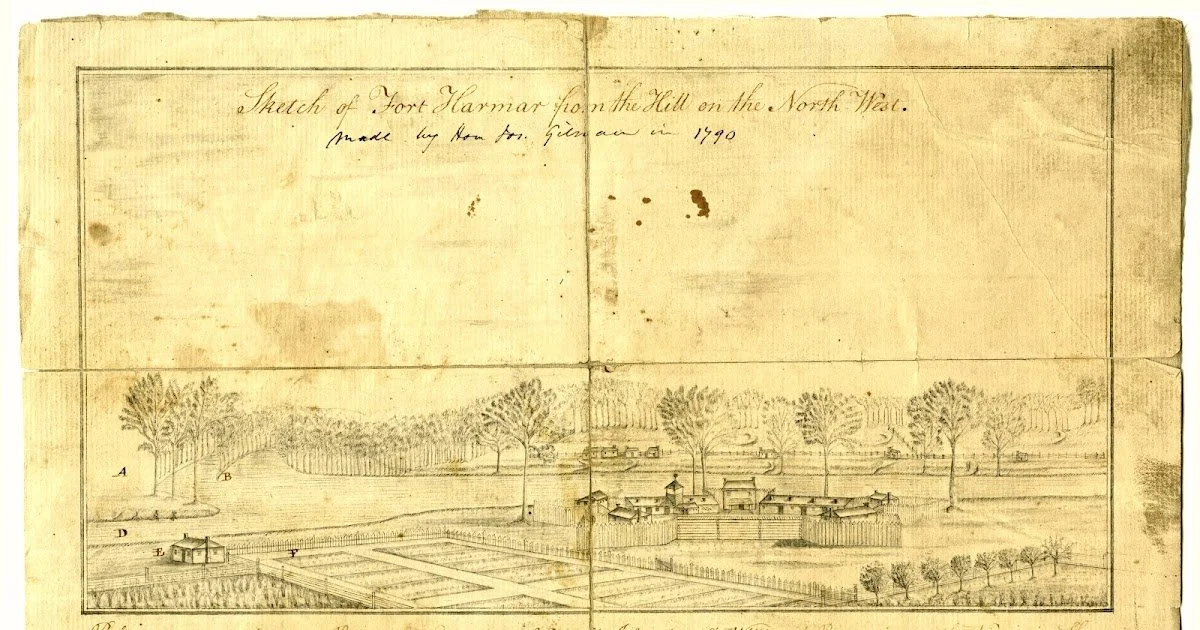 Sketch of Fort Harmar from the Hill on the North West.
made by Hon Jos. Gilman in 1790
A
B
D
E
F